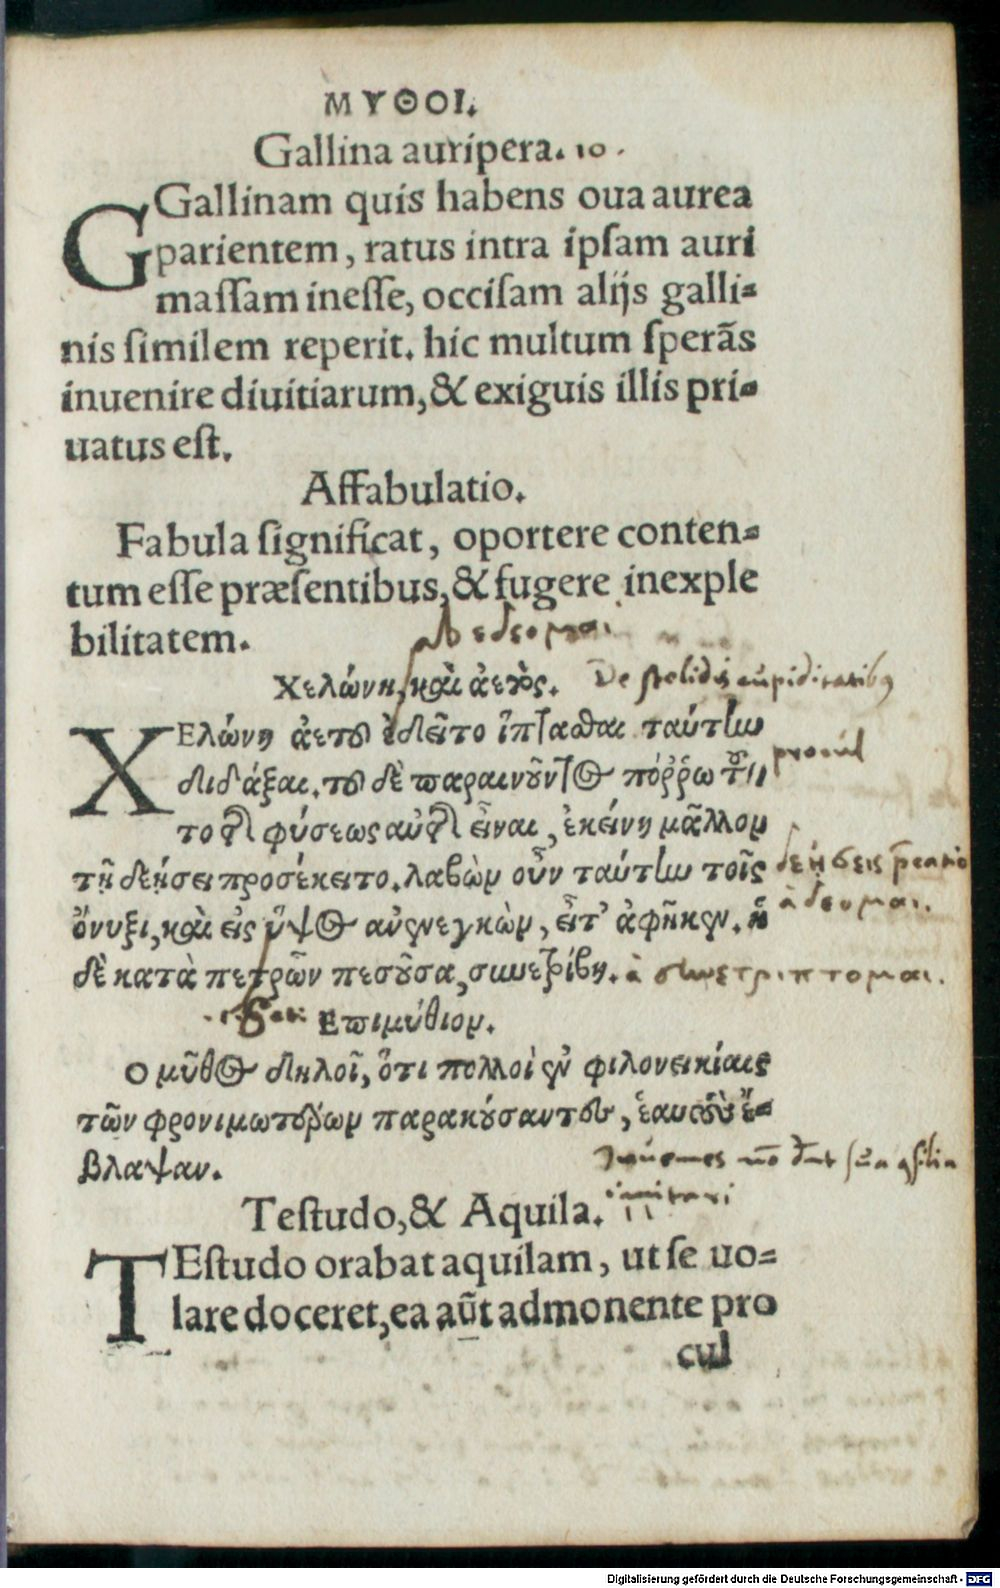 ΜΥΘΟΙ.
Gallina auripera. 10.
GGallinam quis habens oua aurea
parientem, ratus intra ipſam auri
maſſam ineſſe, occiſam alijs galli-
nis ſimilem reperit. hic multum ſperãs
inuenire diuitiarum, & exiguis illis pri-
uatus eſt.
Affabulatio.
Fabula ſignificat, oportere conten-
tum eſſe præſentibus, & fugere inexple
bilitatem.
Χελώνη, καὶ ἀετός.
De ſtolidis cupiditatibus
ΧΕλώνη ἀετοῦ ἐδεῖτο ἵπτασθαι ταύτην
διδάξαι. τοῦ δὲ παραινοῦντος πόῤῥω τοῦ
procul
το τῆς φύσεως αὐτῆς εἶναι, ἐκείνη μᾶλλον
τῇ δεήσει προσέκειτο. λαβὼν οὖν ταύτην τοῖς
δεήσεις
ὄνυξι, καὶ εἰς ὕψος ἀνενεγκὼν, εἶτ' ἀφῆκεν. ἡ
ἀ δεομαι.
δὲ κατὰ πετρῶν πεσοῦσα, συνετρίβη.
ἀ συνετριπτομαι.
Επιμύθιον.
Ο μῦθος δηλοῖ, ὅτι πολλοὶ ἐν φιλονεικίαις
τῶν φρονιμωτέρων παρακούσαντες, ἑαυτοὺς ἔ-
βλαψαν.
imitari
Teſtudo, & Aquila.
TEſtudo orabat aquilam, ut ſe uo-
lare doceret, ea aũt admonente pro
cul
Digitalisierung gefördert durch die Deutsche Forschungsgemeinschaft - DFG